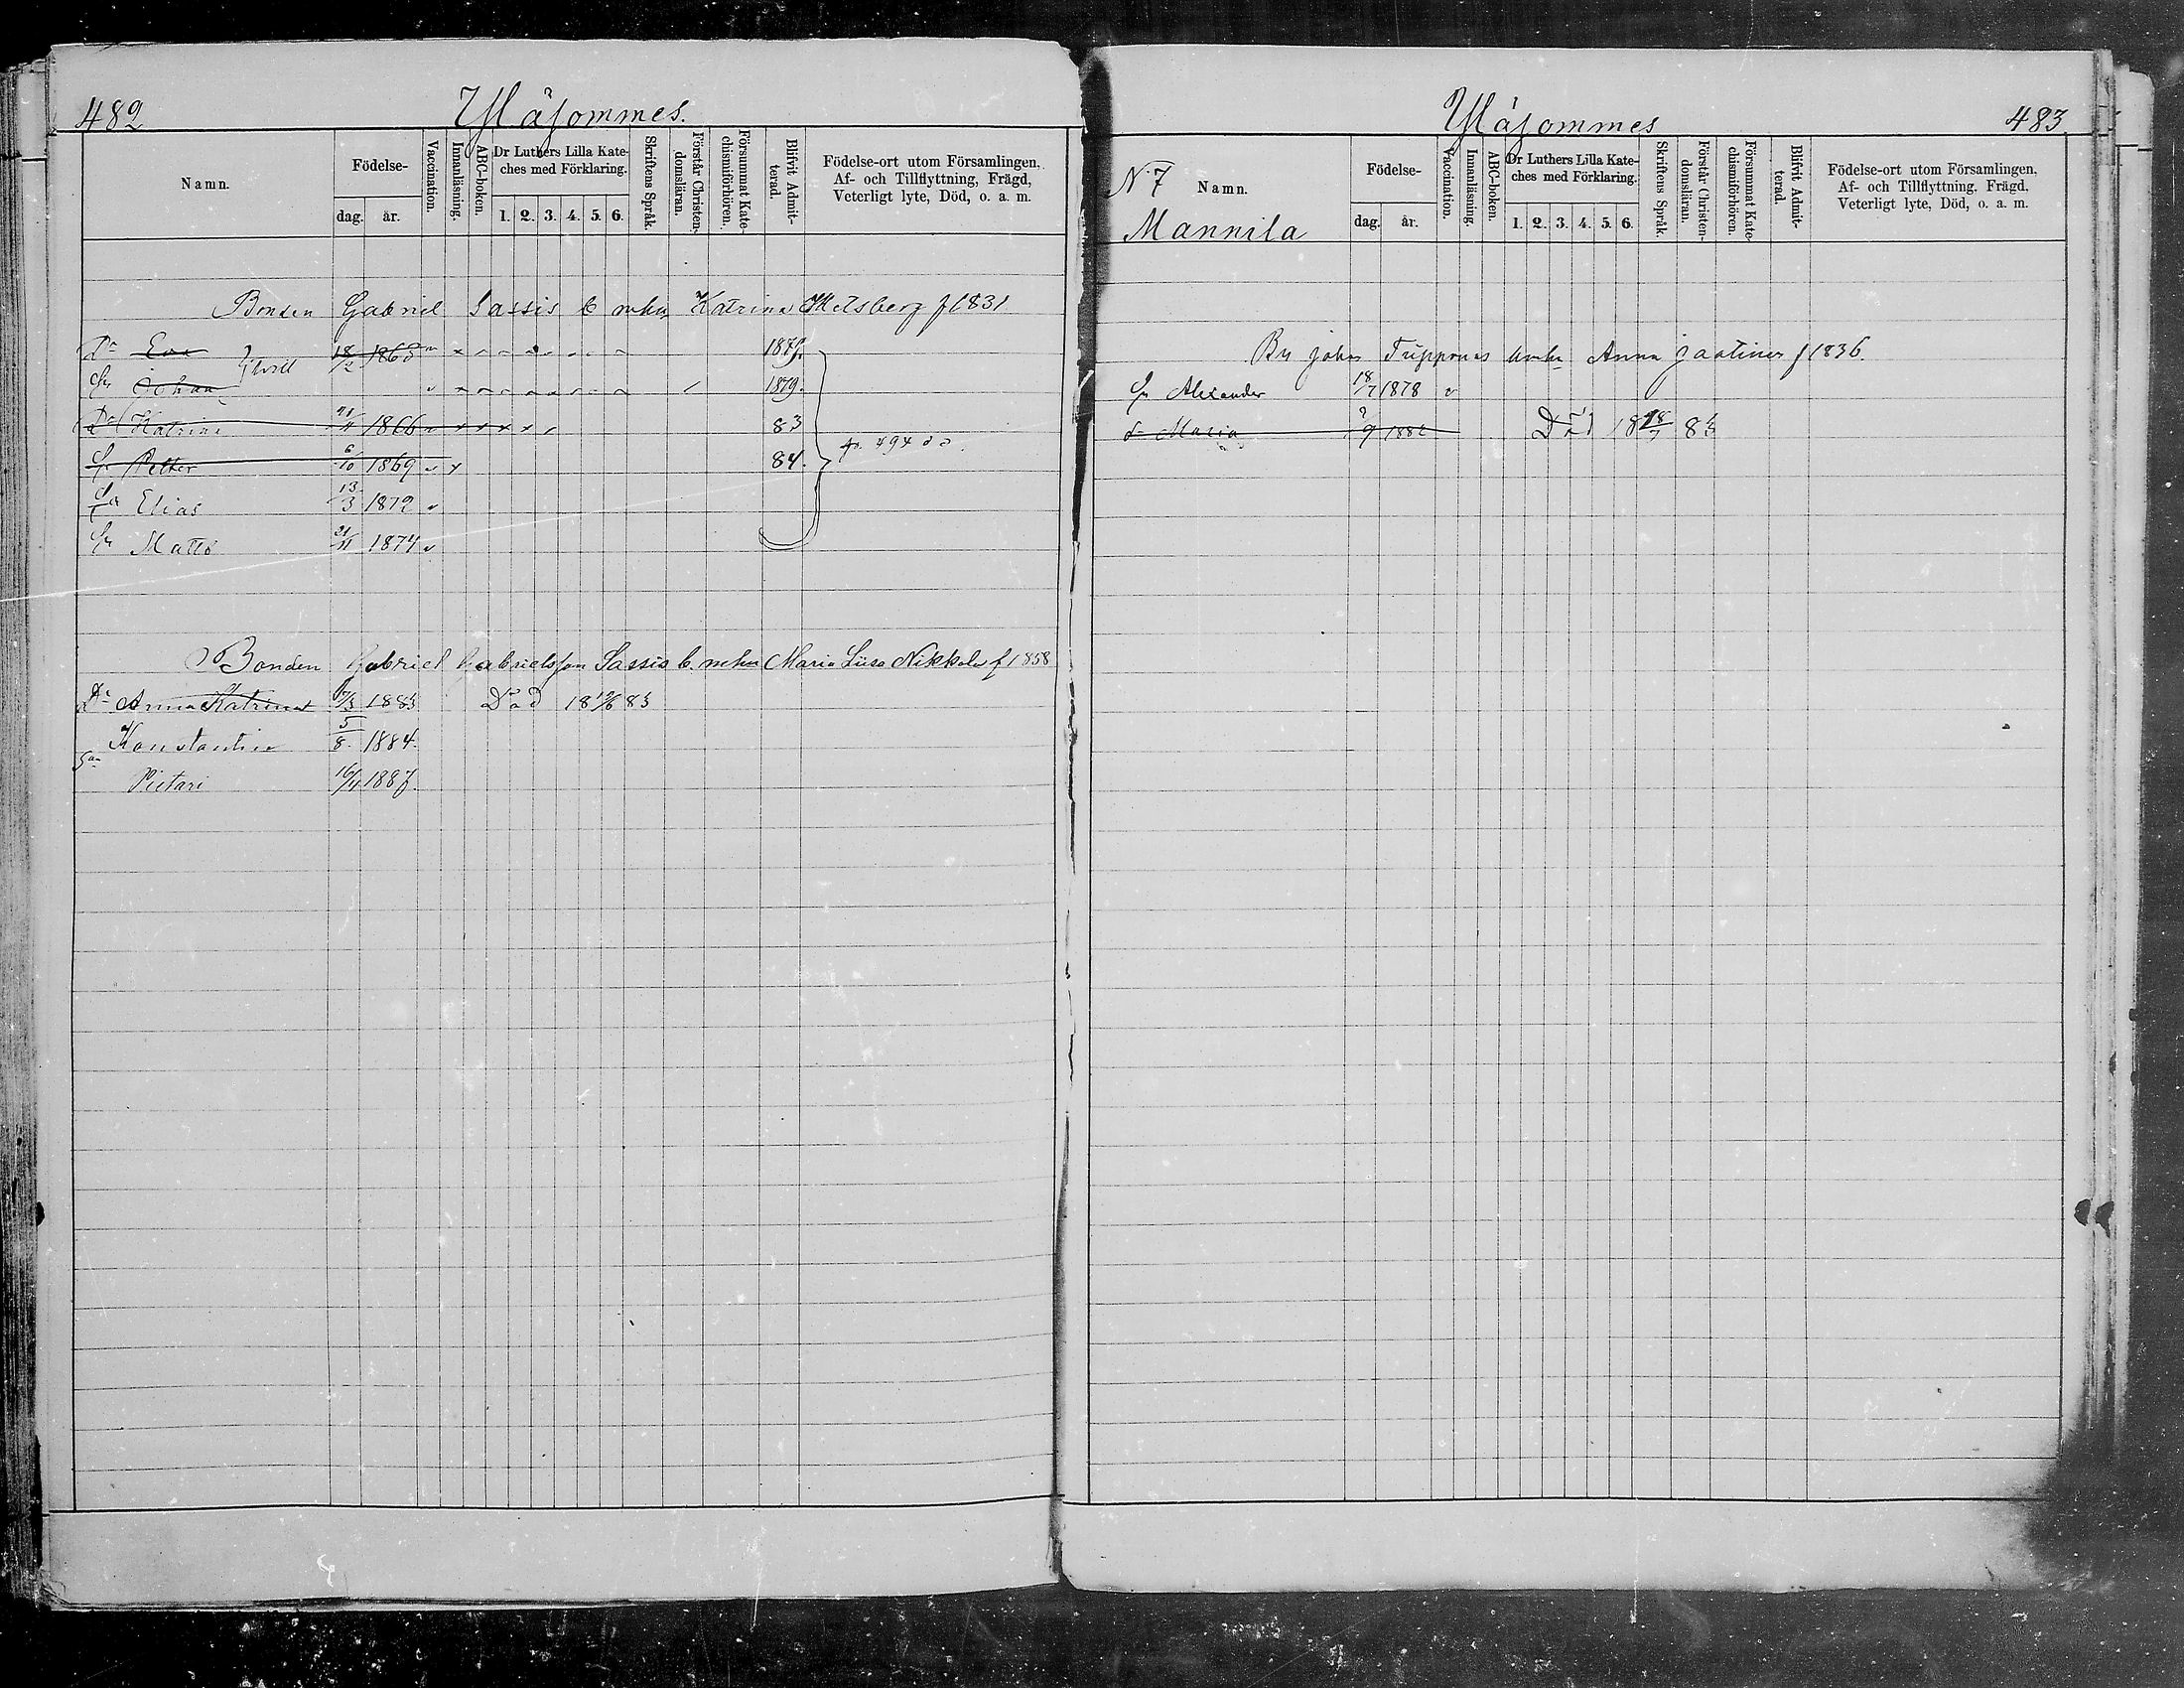 482
Yläsommes.
Namn.
Födelse-
dag. år.
Vaccination.
Innanläsning.
ABC-boken.
Dr Luthers Lilla Kate-
ches med Förklaring.
1. 2. 3. 4. 5. 6.
Skriftens Språk.
Förstår Christen-
domsläran.
Försummat Kate-
chismiförhören.
Blifvit Admit-
terad.
Födelse-ort utom Församlingen,
Af- och Tillflyttning, Frägd,
Veterligt lyte, Död, o. a. m.
Bonden Gabriel Sassis Katrina f 1831
Dr Eva 18/2 1863 1879.
Sn Johan 1879.
Dr Katrina 1866 83
Sn Petter 6/10 1869 84.
494
Sn Elias 13/3 1872
Sn Matts 21/11 1874
Bonden Gabriel Gabrielsson Sassis Maria Liisa Nikkola f 1858
Dr Anna Katrina 1883 Död 83
Konstantin 5/8 1884.
Pietari 16/4 1887.
Yläsommes
483
N 7
Mannila
Namn.
Födelse-
dag. år.
Vaccination.
Innanläsning.
ABC-boken.
Dr Luthers Lilla Kate-
ches med Förklaring.
1. 2. 3. 4. 5. 6.
Skriftens Språk.
Förstår Christen-
domsläran.
Försummat Kate-
chismiförhören.
Blifvit Admit-
terad.
Födelse-ort utom Församlingen,
Af- och Tillflyttning, Frägd,
Veterligt lyte, Död, o. a. m.
Johan Anna Jaatinen f 1836.
Sn Alexander 18/7 1878
Dr Maria 1882 Död 83